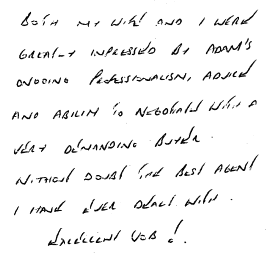 BOTH MY WIFE AND I WERE
GREATLY IMPRESSED BY ADAM'S
ONGOING PROFESSIONALISM, ADVICE
AND ABILITY TO NEGOTIATE WITH A
VERY DEMANDING BUYER.
WITHOUT DOUBT THE BEST AGENT
I HAVE EVER DEALT WITH.
EXCELLENT JOB!